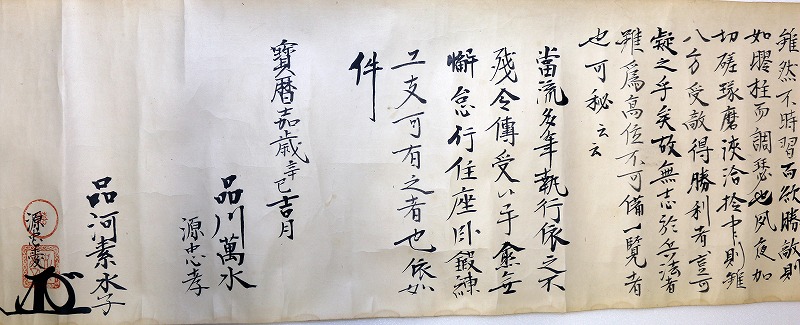 雖然不時習而欲勝敵則
如膠柱而調瑟也夙夜加
切磋琢磨浹洽於中則雖
八方受敵得勝利者豈可
疑之乎矣故無志於兵法者
雖爲高位不可備一覽者
也可秘云云
當流多年執行依之不
殘令傳受以手愈無
懈怠行住座臥鍛練
工支可有之者也依如
件
寶暦嘉歳辛巳吉月
品川萬水
源忠孝
品河素水子
源